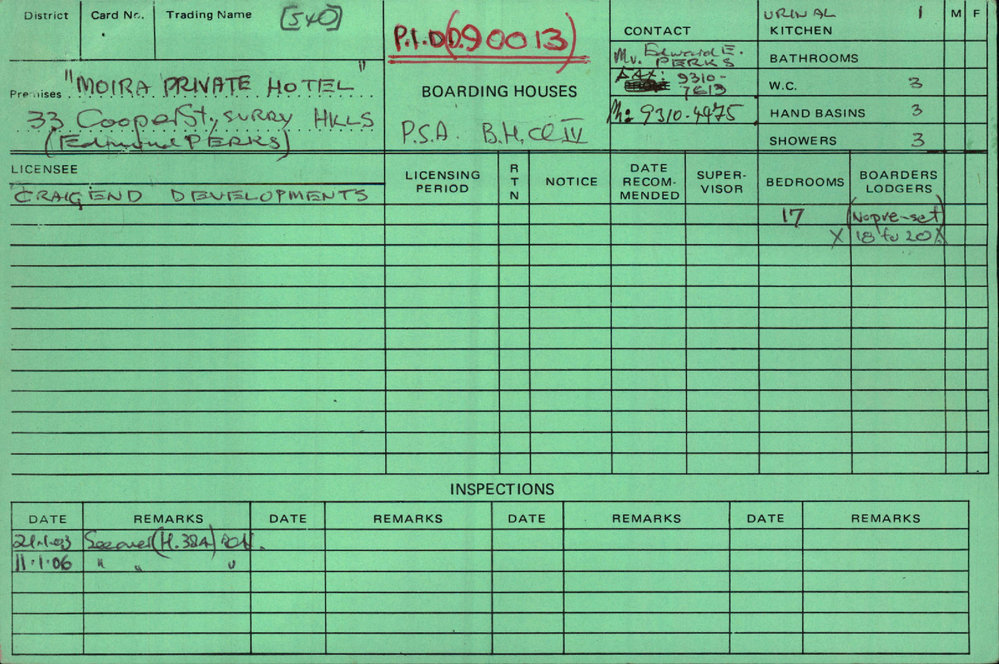 District Card No. Trading Name [540]
Premises "MOIRA PRIVATE HOTEL"
33 Cooper St, SURRY HILLS
(Edmund PERKS)
P.I.D. (090013)
BOARDING HOUSES
P.S.A. B.H. Cl IV
CONTACT
Mr. Edward E. PERKS
FAX: 9310-7613
Ph: 9310-4475
M F
URINAL 1
KITCHEN
BATHROOMS
W.C. 3
HAND BASINS 3
SHOWERS 3
LICENSEE
CRAIGEND DEVELOPMENTS
LICENSING PERIOD
RTN
NOTICE
DATE RECOMMENDED
SUPERVISOR
BEDROOMS
BOARDERS LODGERS
17 (No pre-set)
X 18 to 20 X
INSPECTIONS
DATE REMARKS DATE REMARKS DATE REMARKS DATE REMARKS
21.1.03 (H.38A)
11.1.06 " " "